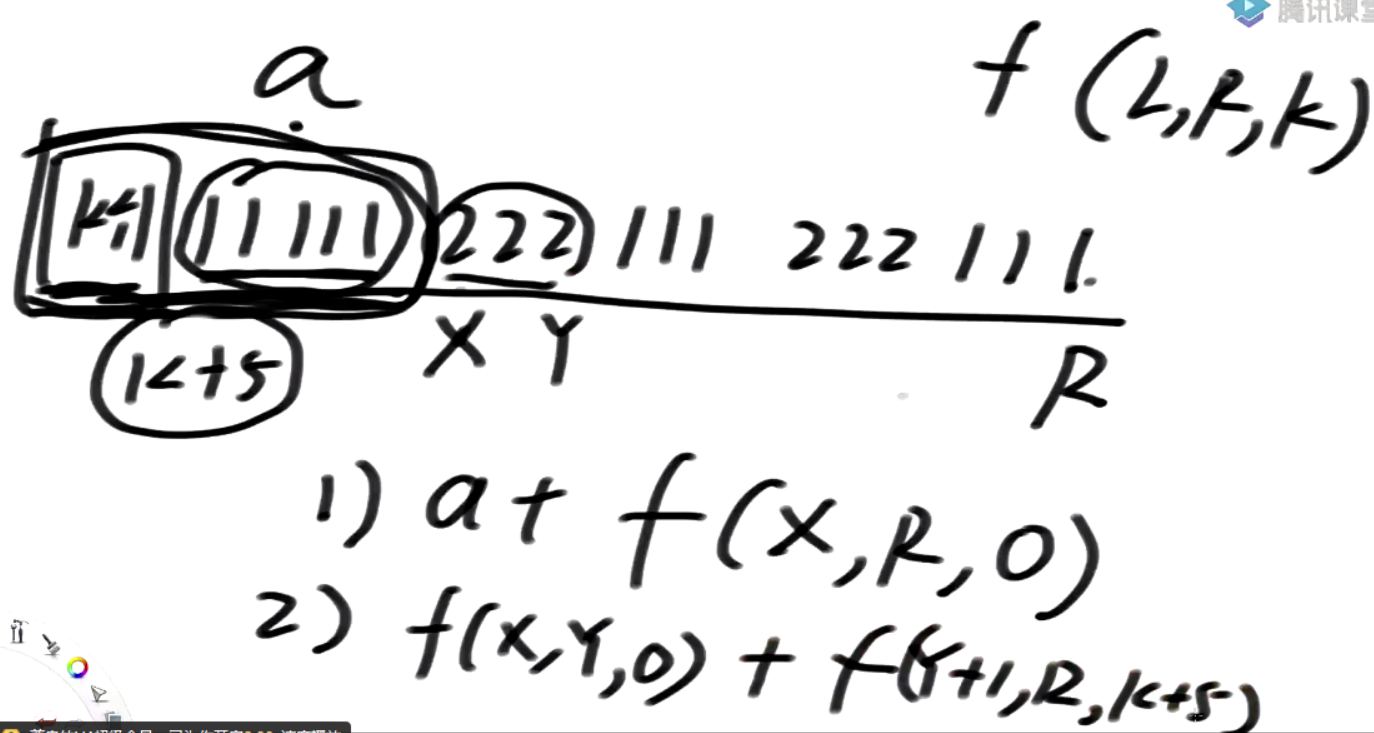 腾讯课堂
a
f(L,R,K)
K个1 11111 222 111 222 111
K+5 X Y R
1) a+ f(X,R,0)
2) f(X,Y,0) + f(Y+1,R,K+5)